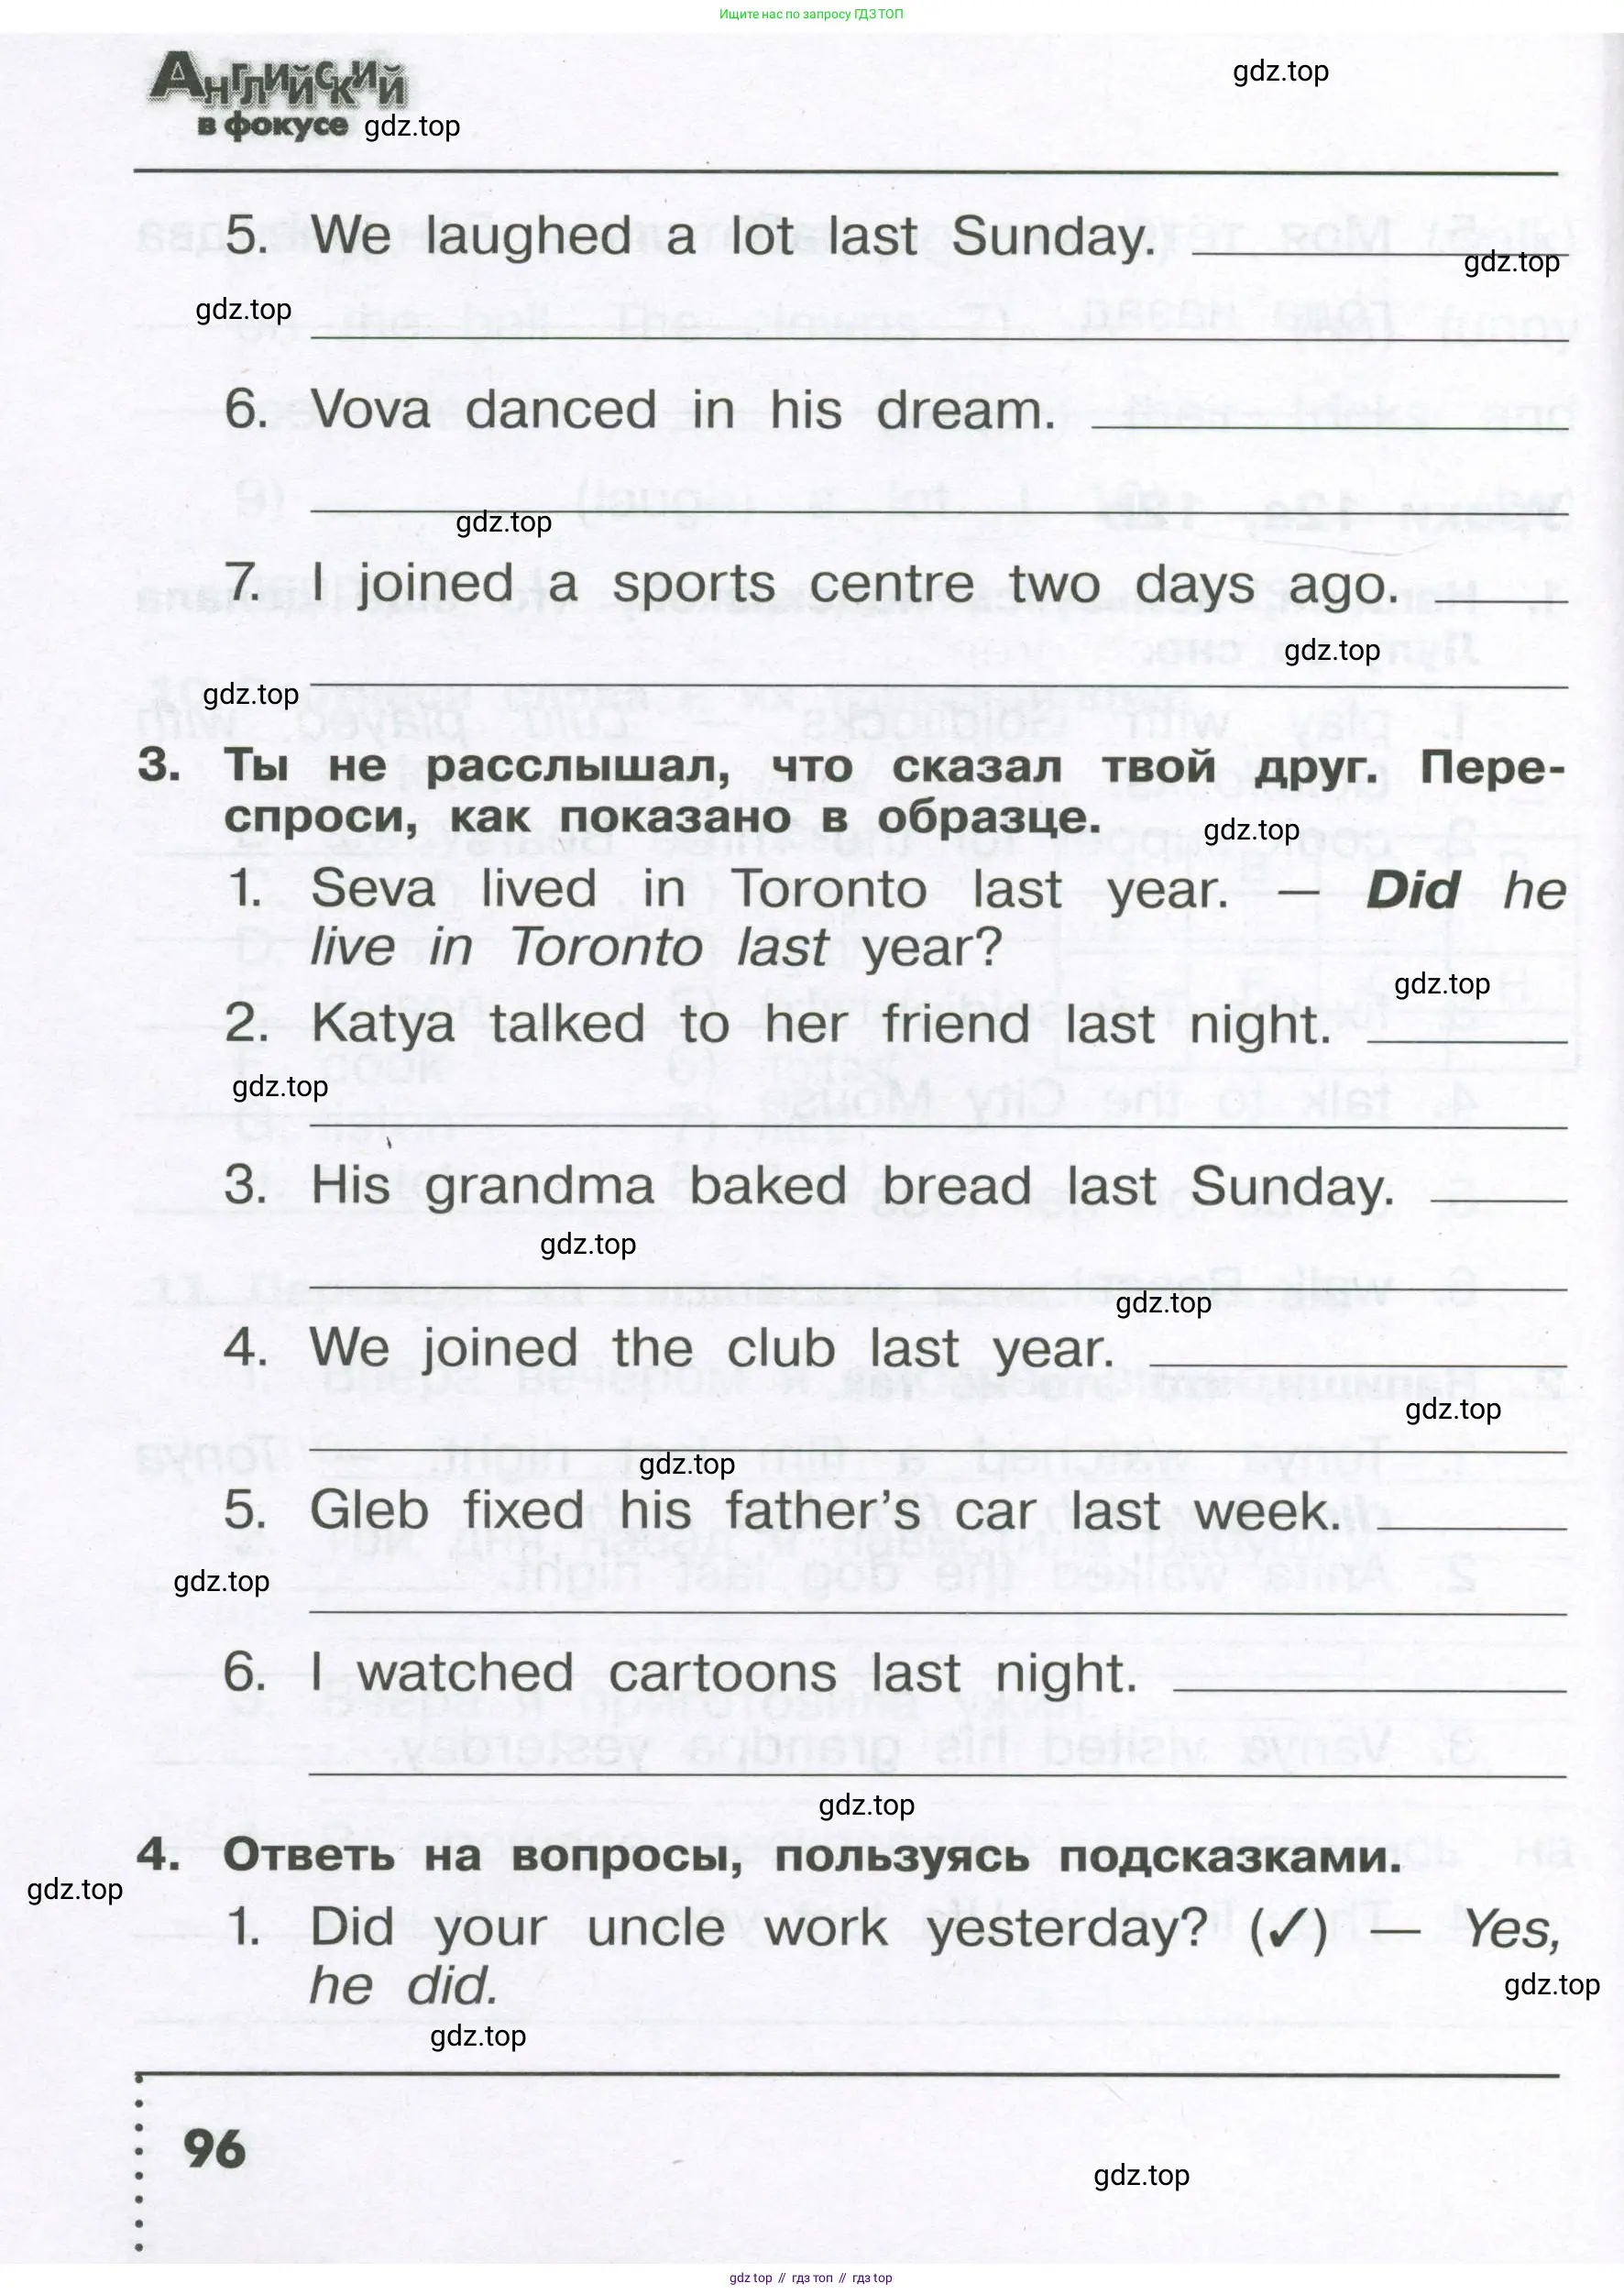 Ищите нас по запросу ГДЗ ТОП
Английский
в фокусе
gdz.top
gdz.top
5. We laughed a lot last Sunday.
gdz.top
gdz.top
6. Vova danced in his dream.
gdz.top
7. I joined a sports centre two days ago.
gdz.top
gdz.top
3. Ты не расслышал, что сказал твой друг. Пере-
спроси, как показано в образце.
gdz.top
1. Seva lived in Toronto last year. — Did he
live in Toronto last year?
gdz.top
2. Katya talked to her friend last night.
gdz.top
3. His grandma baked bread last Sunday.
gdz.top
gdz.top
4. We joined the club last year.
gdz.top
gdz.top
5. Gleb fixed his father's car last week.
gdz.top
6. I watched cartoons last night.
gdz.top
4. Ответь на вопросы, пользуясь подсказками.
gdz.top
1. Did your uncle work yesterday? (✓) — Yes,
he did.
gdz.top
gdz.top
96
gdz.top
gdz top // гдз топ // гдз top